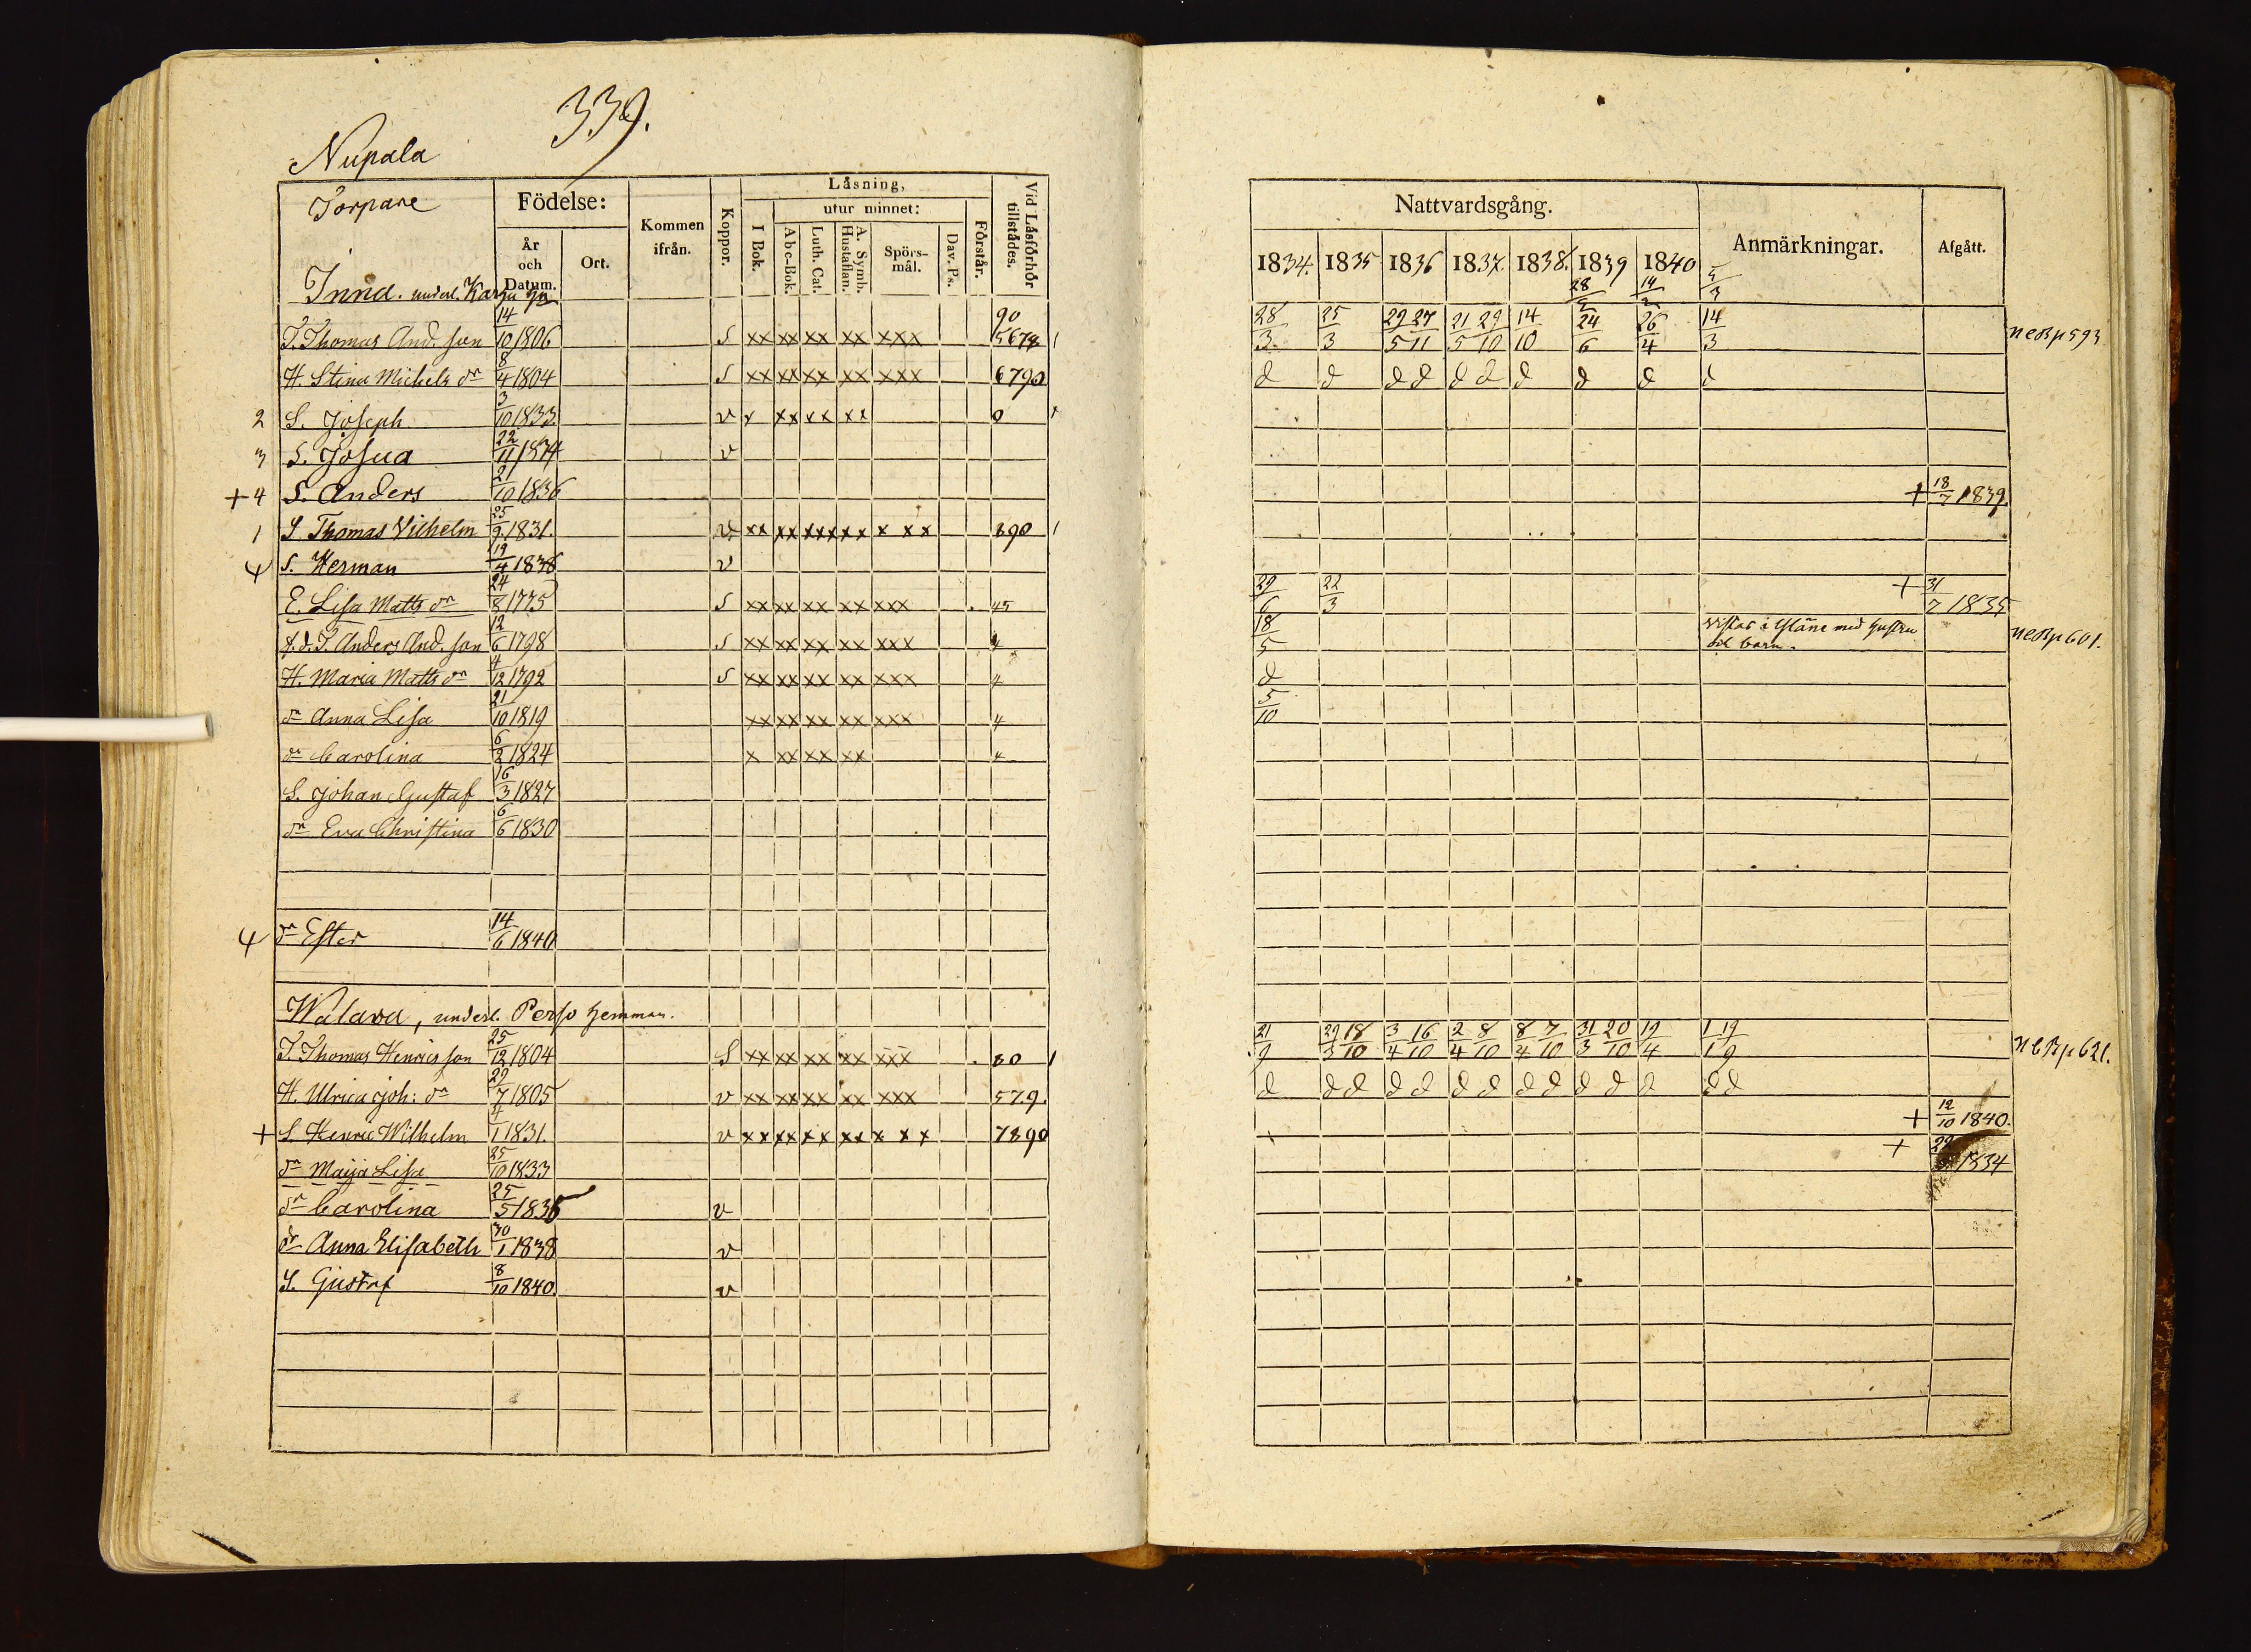 339.
Nupala
Torpare
Födelse:
År och Datum.
Ort.
Kommen ifrån.
Koppor.
Läsning,
utur minnet:
I Bok.
Abc-Bok.
Luth. Cat.
A. Symb. Hustaflan.
Spörs-mål.
Dav. Ps.
Förstår.
Vid Läsförhör tillstädes.
Inna. underl. Karju
T. Thomas And. son 14/10 1806 S xx xx xx xx xxx 90 5678 1
H. Stina Michels dr 8/4 1804 S xx xx xx xx xxx 6790
2 S. Joseph 3/10 1833. v x xx xx xx 0
3 S. Josua 22/11 1834 v
+ 4 S. Anders 21/10 1836
1 S Thomas Vilhelm 25/9 1831. v xx xx xxx xx x xx 890 1
4 S. Herman 19/4 1838 v
E. Lisa Matts dr 24/8 1775 S xx xx xx xx xxx 45
f.d. T. Anders And. son 12/6 1798 S xx xx xx xx xxx 4
H. Maria Matts dr 4/12 1792 S xx xx xx xx xxx 4
dr Anna Lisa 21/10 1819 xx xx xx xx xxx 4
dr Carolina 6/2 1824 x xx xx xx 4
S. Johan Gustaf 16/3 1827
dr Eva Christina 6/6 1830
4 dr Ester 14/6 1840
Walawa, underl. Perho hemman.
T. Thomas Henrics son 25/12 1804 S xx xx xx xx xxx 80 1
H. Ulrica Joh: dr 29/7 1805 v xx xx xx xx xxx 57.9.
+ S. Henric Wilhelm 4/1 1831. v xx xx xx xx x xx 7890
dr Maija Lisa 25/10 1833
dr Carolina 25/5 1835 v
dr Anna Elisabeth 30/1 1838 v
S. Gustaf 8/10 1840. v
Nattvardsgång.
Anmärkningar.
Afgått.
1834. 1835 1836 1837. 1838. 1839 1840
28/3 25/3 29/5 27/11 21/5 29/10 14/10 24/6 26/4 14/3 593
d d d d d d d d d d
+ 18/7 1839.
29/6 22/3 + 31/7 1835
18/5 vistas i Yläne med hustru och barn. 601.
d
5/10
21/9 29/3 18/10 3/4 16/10 2/4 8/10 8/4 7/10 31/3 20/10 19/4 1/1 19/9 621.
d d d d d d d d d d d d d d
+ 12/10 1840.
+ 1834